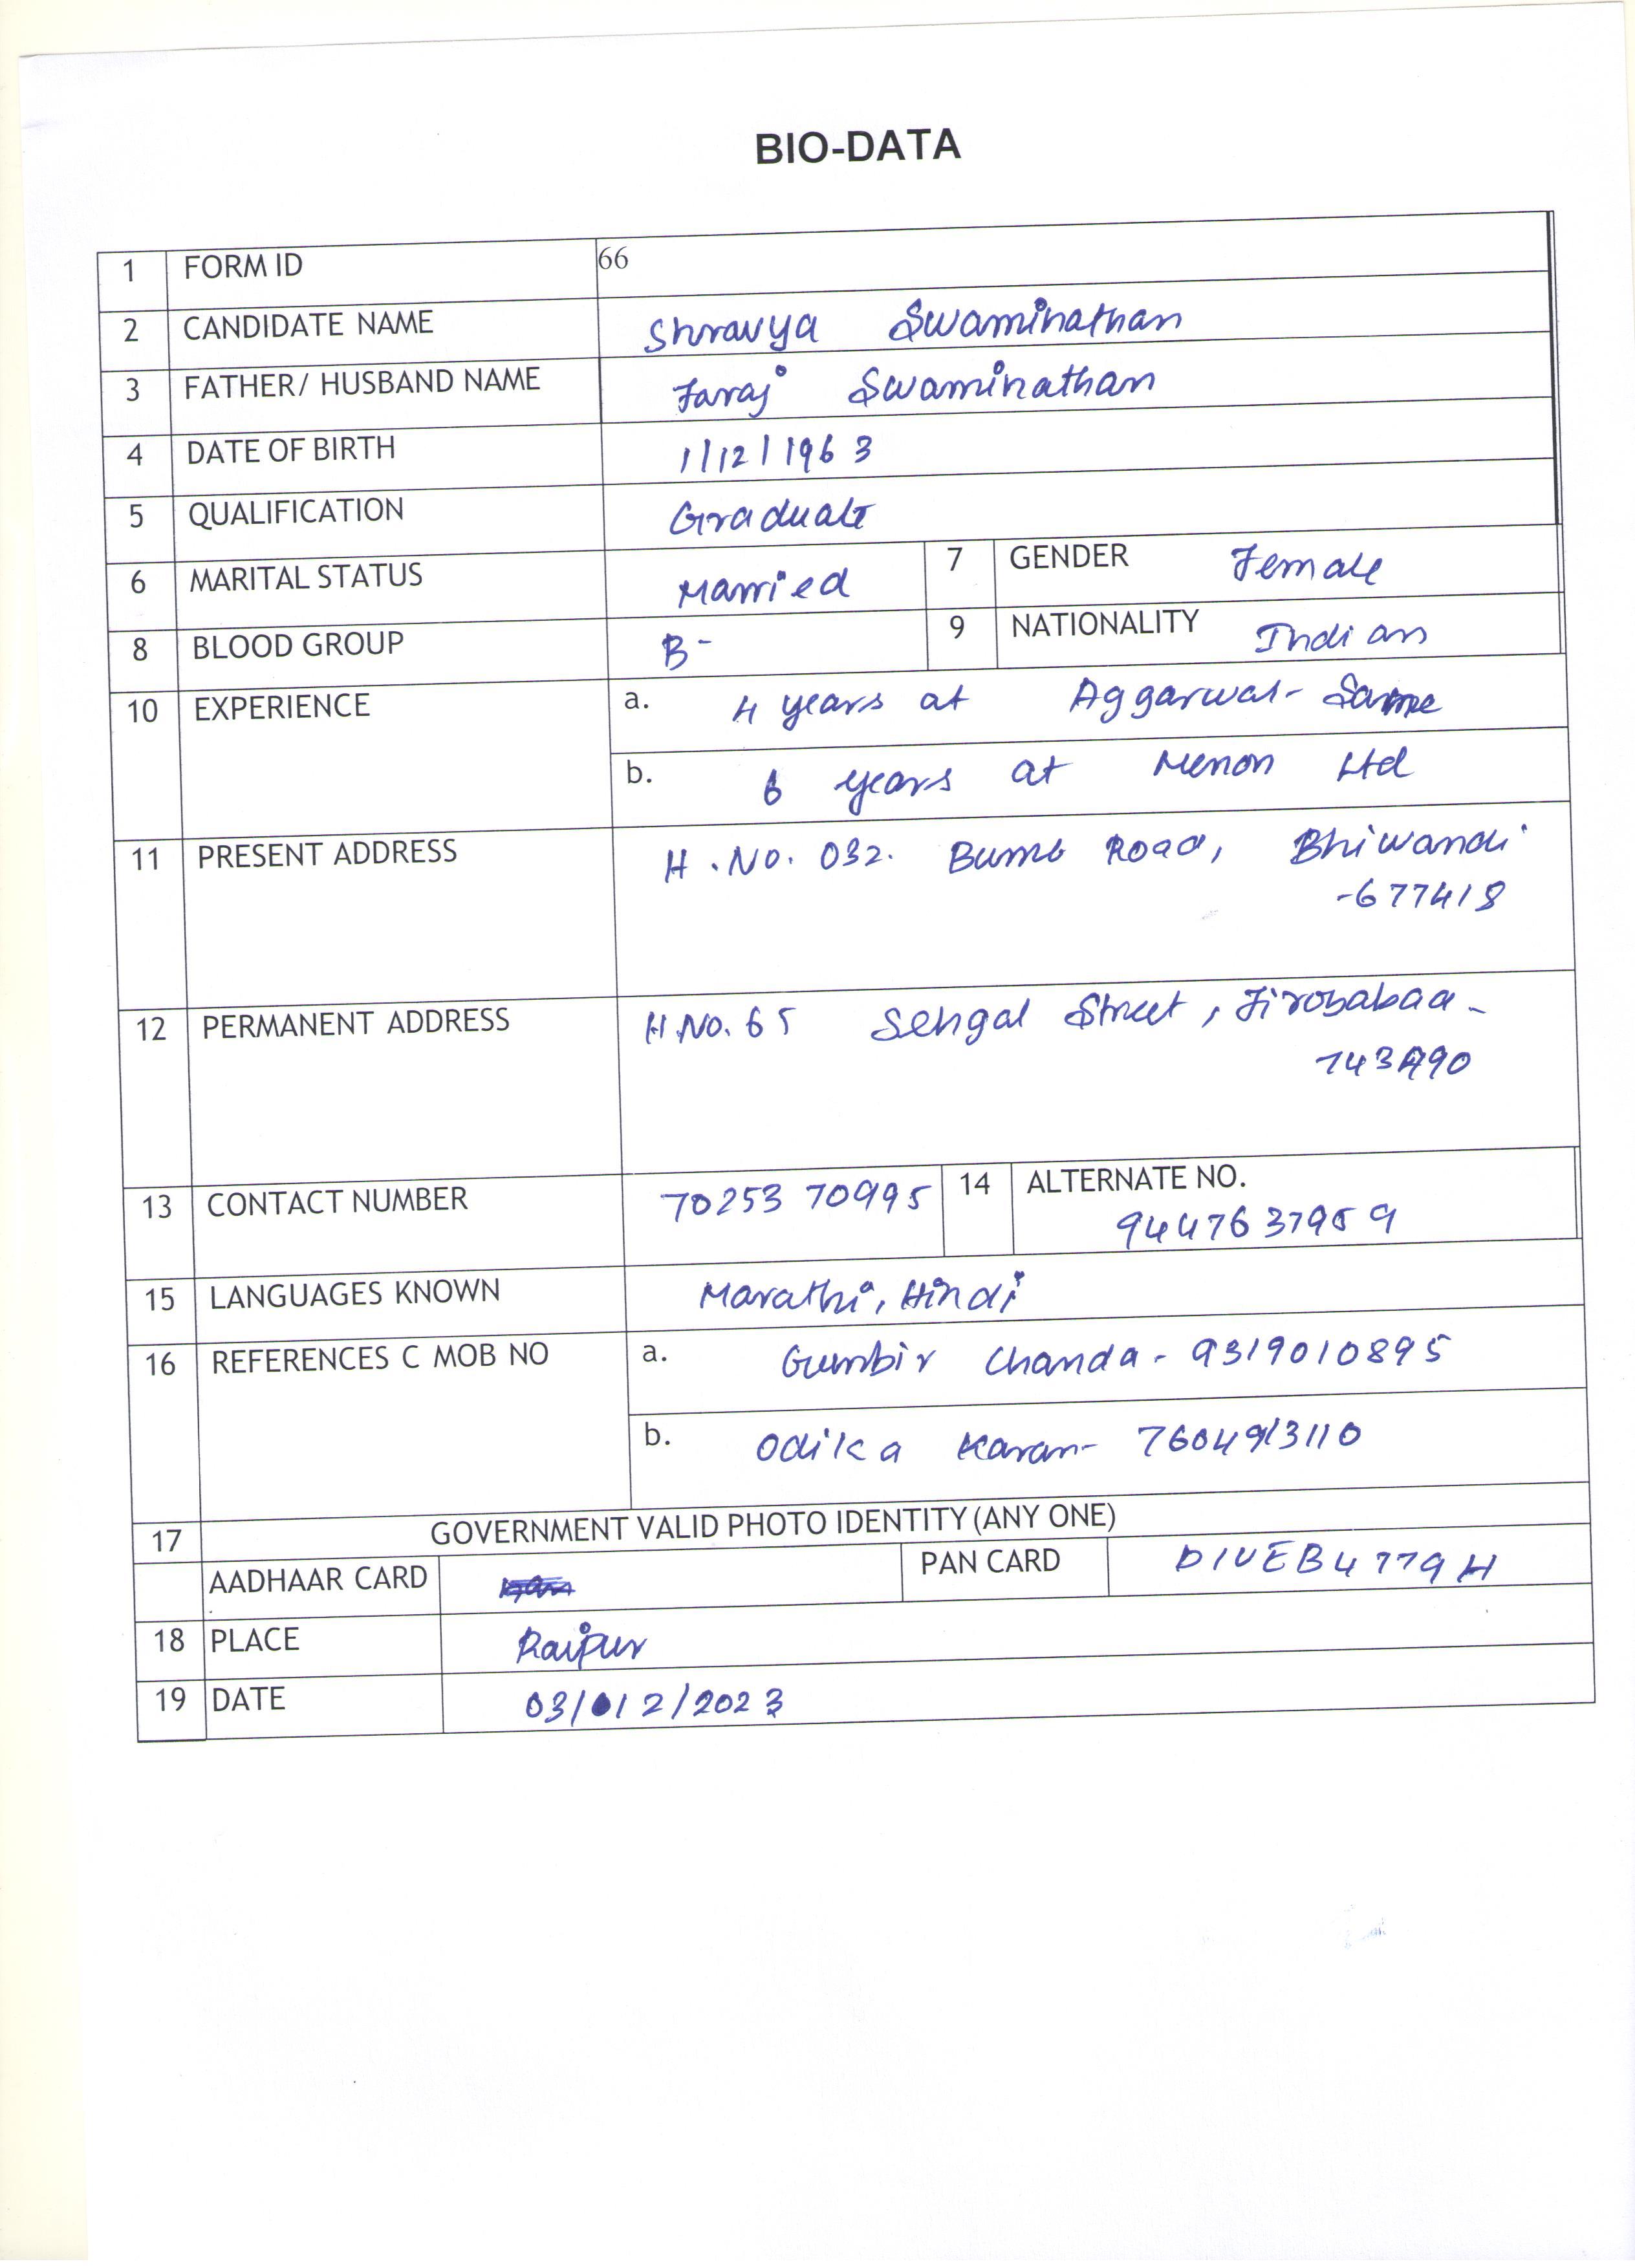 BIO-DATA
1 FORM ID 66
2 CANDIDATE NAME Shravya Swaminathan
3 FATHER/ HUSBAND NAME Faraj Swaminathan
4 DATE OF BIRTH 1/12/1963
5 QUALIFICATION Graduate
6 MARITAL STATUS Married 7 GENDER Female
8 BLOOD GROUP B- 9 NATIONALITY Indian
10 EXPERIENCE a. 4 years at Aggarwal-Same
b. 6 years at Menon Ltd
11 PRESENT ADDRESS H.No. 032. Bumb Road, Bhiwandi
-677418
12 PERMANENT ADDRESS H.No. 65 Sehgal Street, Firozabad -
13 CONTACT NUMBER 70253 70995 14 ALTERNATE NO.
9447637959
15 LANGUAGES KNOWN Marathi, Hindi
16 REFERENCES C MOB NO a. Gumbir Chanda - 9319010895
b. Odika Karan- 7604913110
17 GOVERNMENT VALID PHOTO IDENTITY (ANY ONE)
AADHAAR CARD PAN CARD DIUEB4779H
18 PLACE Raipur
19 DATE 03/12/2023